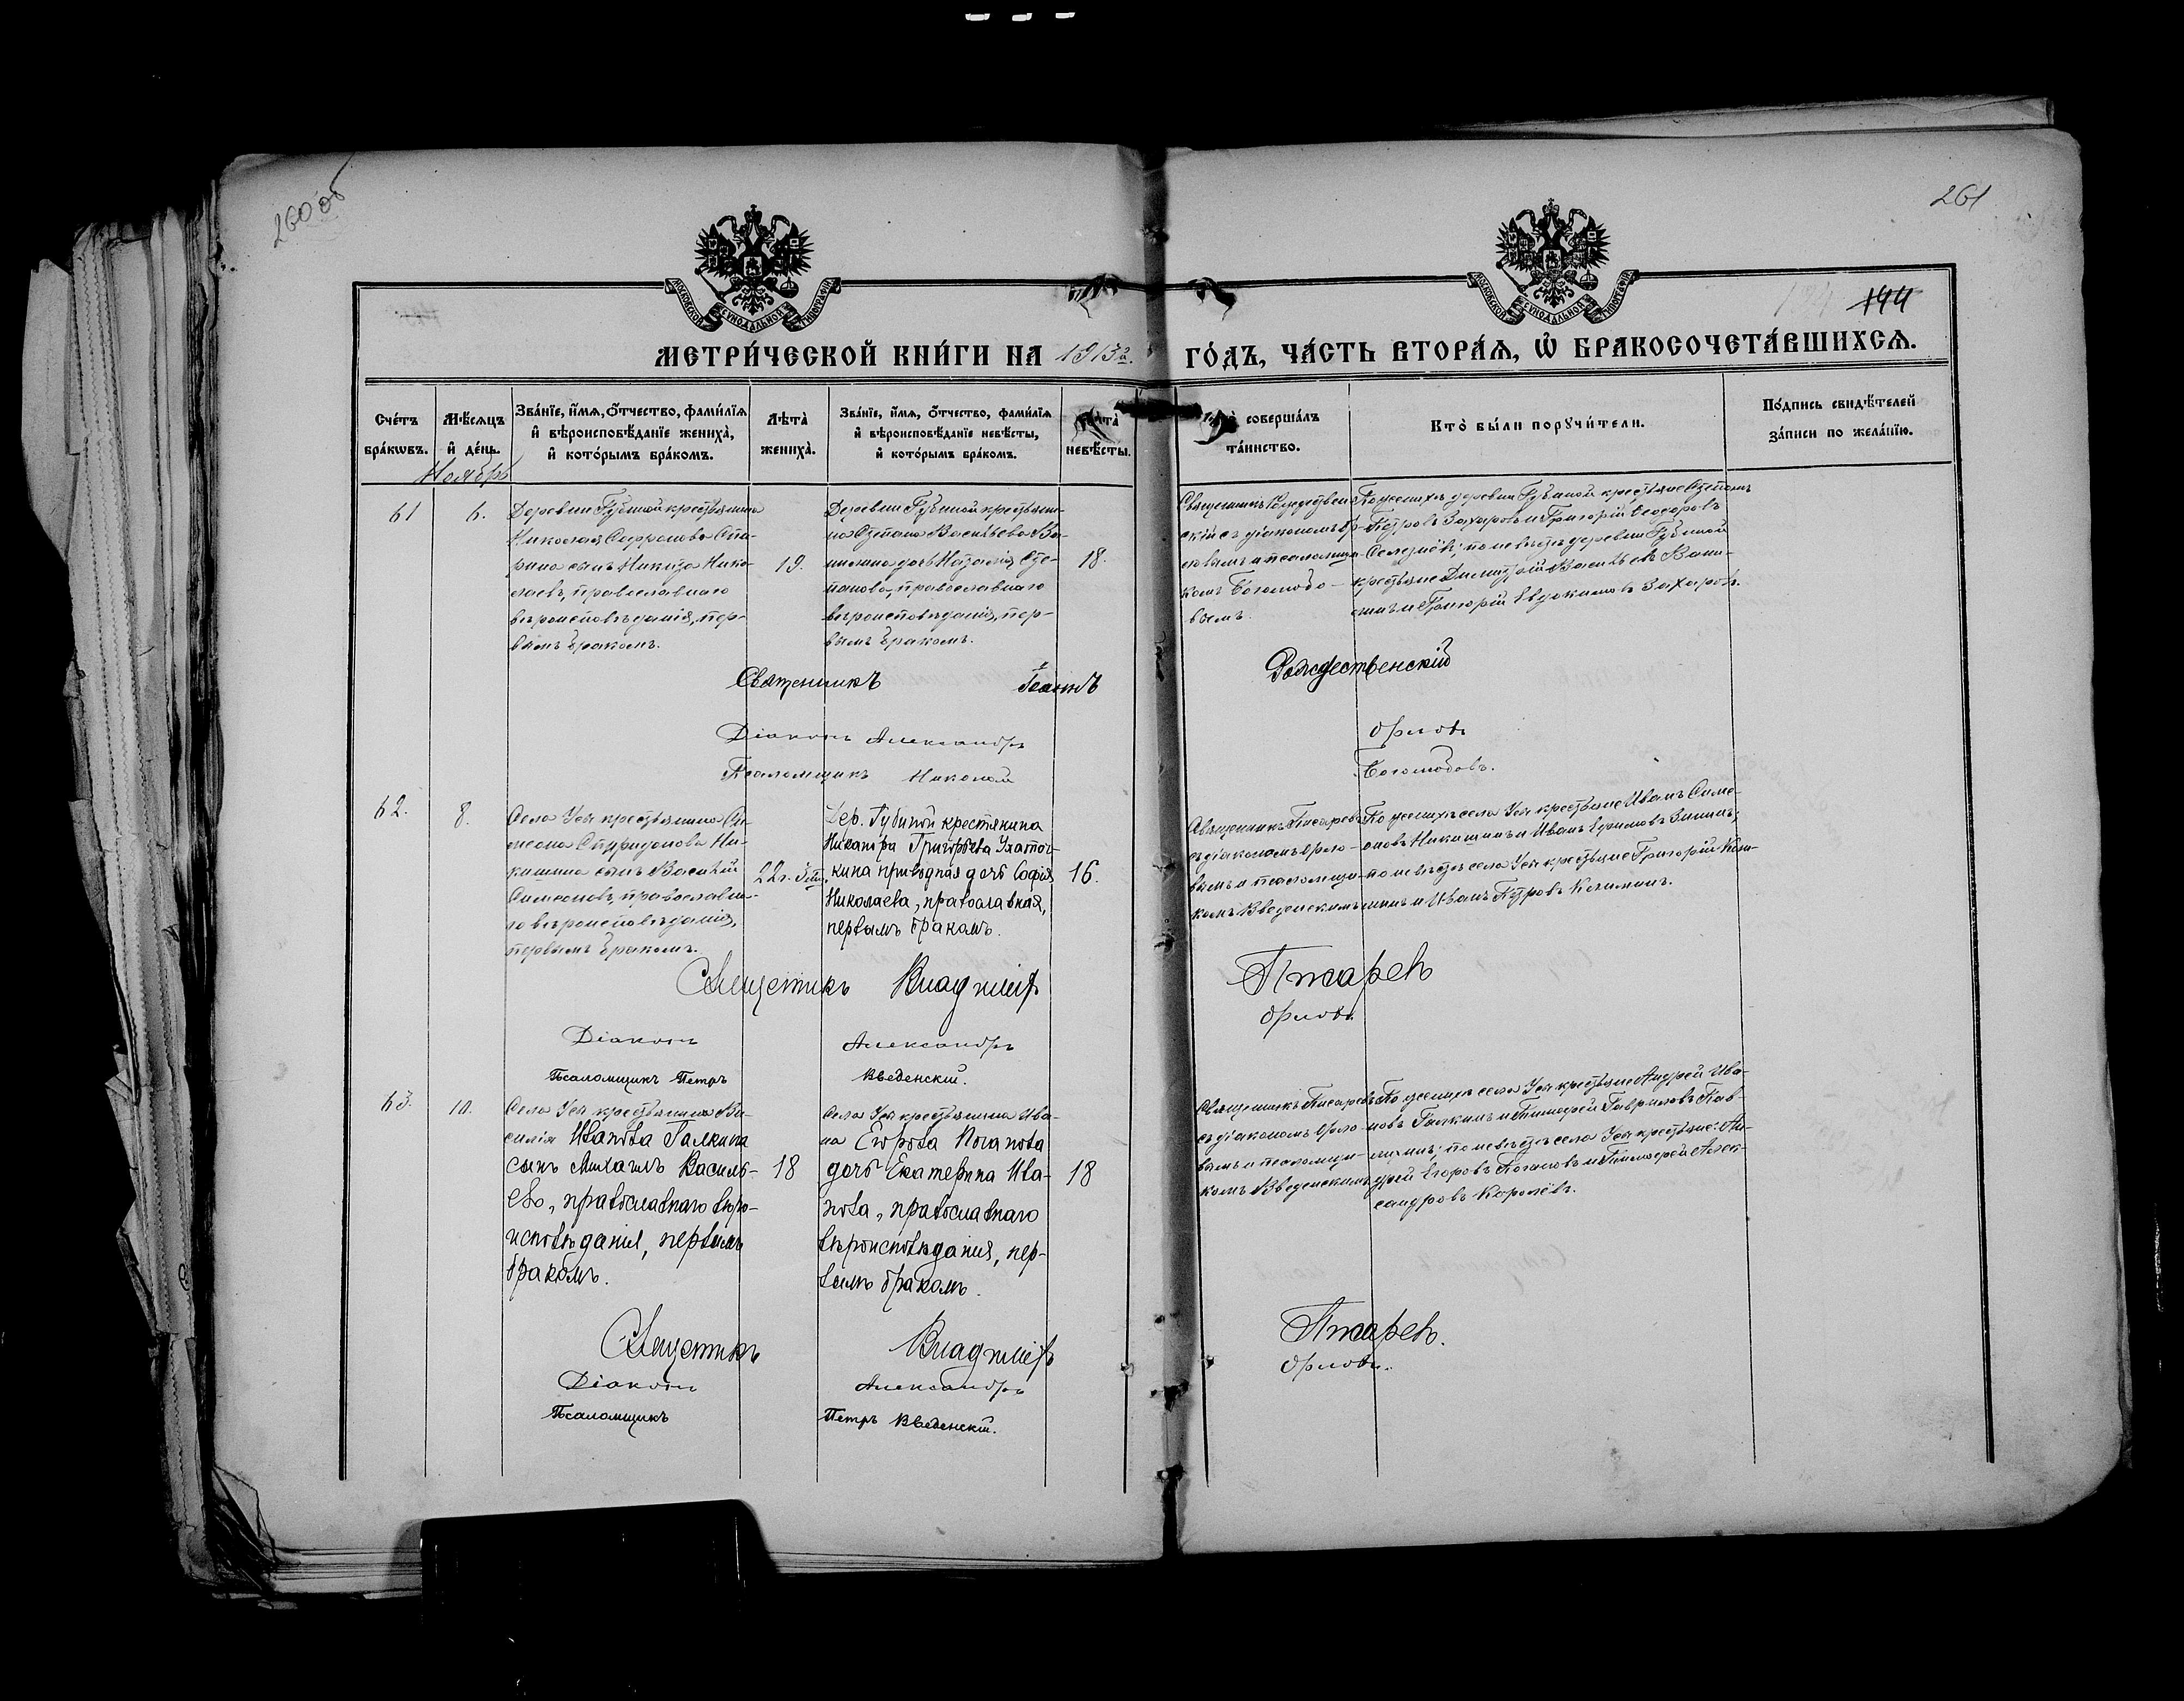 260 об
261
144
МОСКОВСКОЙ СѴНОДАЛЬНОЙ ТИПОГРАФІИ
МОСКОВСКОЙ СѴНОДАЛЬНОЙ ТИПОГРАФІИ
МЕТРИ́ЧЕСКОЙ КНИ́ГИ НА 1913й. ГО́ДЪ, ЧА́СТЬ ВТОРА́Ѧ, Ѡ҆ БРАКОСОЧЕТА́ВШИХСѦ.
Сче́тъ
бра́кѡвъ.
Мѣ́сѧцъ
и҆ де́нь.
Зва́нїе, и҆́мѧ, ѻ҆́тчество, фами́лїѧ
и҆ вѣроисповѣ́данїе жениха̀,
и҆ кото́рымъ бра́комъ.
Лѣ́та̀
жениха̀.
Зва́нїе, и҆́мѧ, ѻ҆́тчество, фами́лїѧ
и҆ вѣроисповѣ́данїе невѣ́сты,
и҆ кото́рымъ бра́комъ.
невѣ́сты.
соверша́лъ
та́инство.
Кто̀ бы́ли порꙋчи́тели.
По́дпись свидѣ́телей
за́писи по жела́нїю.
Ноябрь
61
6.
Деревни Губиной крестьянина
Николая Софронова Спи-
рина сынъ Никита Нико-
лаевъ, православнаго
вѣроисповѣданія, пер-
вымъ бракомъ.
19.
Деревни Губиной крестьяни-
на Степана Васильева Ва-
нилина дочь Наталія Сте-
панова, православнаго
вѣроисповѣданія, пер-
вымъ бракомъ.
18.
Священникъ Рождествен-
скій съ діакономъ Ор-
ловымъ и псаломщи-
комъ Боголюбо-
вымъ.
По женихѣ деревни Губиной крестьяне Степанъ
Петровъ Захаровъ и Григорій Ѳеодоровъ
Селезнёвъ; по невѣстѣ деревни Губиной
крестьяне Димитрій Васильевъ Вани-
линъ и Григорій Евдокимовъ Захаровъ.
Священникъ Іоаннъ Рождественскій
Діаконъ Александръ Орловъ
Псаломщикъ Николай Боголюбовъ.
62.
8.
Села Усь крестьянина Си-
меона Спиридонова Ни-
кишина сынъ Василій
Симеоновъ, православна-
го вѣроисповѣданія,
первымъ бракомъ.
22 г.
Дер. Губиной крестьянина
Никанора Григорьева
приводная дочь Софія
Николаева, православная,
первымъ бракомъ.
16.
Священникъ Писаревъ
съ діакономъ Орло-
вымъ и псаломщи-
комъ Введенскимъ
По женихѣ села Усь крестьяне Иванъ Симе-
оновъ Никишинъ и Иванъ Ефимовъ Зининъ;
по невѣстѣ села Усь крестьяне Григорій
и Иванъ Петровъ
Священникъ Владиміръ Писаревъ
Діаконъ Александръ Орловъ
Псаломщикъ Петръ Введенскій.
63.
10.
Села Усь крестьянина Ва-
силія Иванова Галкина
сынъ Михаилъ Василь-
евъ, православнаго вѣро-
исповѣданія, первымъ
бракомъ.
18
Села Усь крестьянина Ива-
на Егорова Поганова
дочь Екатерина Ива-
нова, православнаго
вѣроисповѣданія, пер-
вымъ бракомъ.
18
Священникъ Писаревъ
съ діакономъ Орло-
вымъ и псаломщи-
комъ Введенскимъ
По женихѣ села Усь крестьяне Андрей Ива-
новъ Галкинъ и Тимоѳей Гавриловъ
по невѣстѣ села Усь крестьяне: Ан-
дрей Егоровъ Погановъ и Тимоѳей Алек-
сандровъ Королёвъ.
Священникъ Владиміръ Писаревъ.
Діаконъ Александръ Орловъ.
Псаломщикъ Петръ Введенскій.